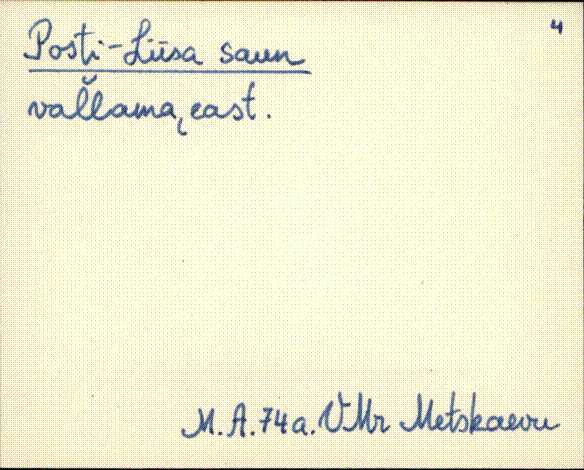 4
Posti-Liisa saun
val̆lama, east.
M. A. 74 a. VMr Metskaevu